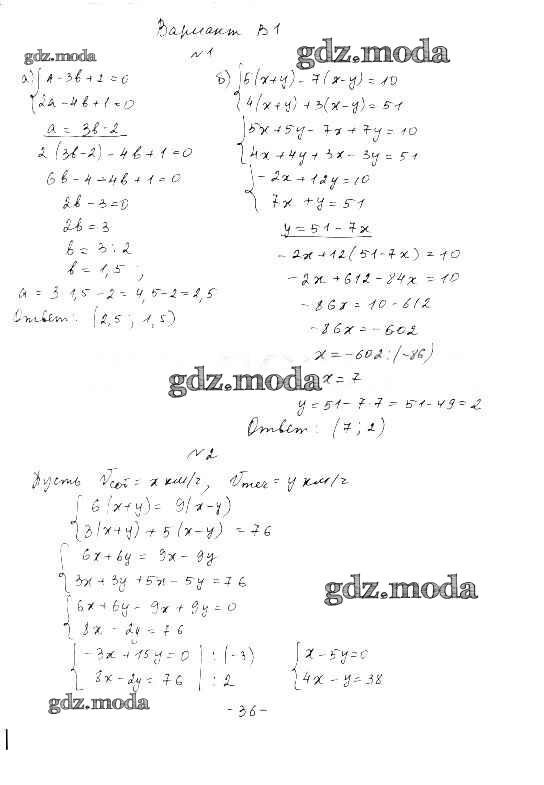 Вариант В1
gdz.moda
gdz.moda
№1
а) { a - 3b + 2 = 0
2a - 4b + 1 = 0
a = 3b - 2
2(3b - 2) - 4b + 1 = 0
6b - 4 - 4b + 1 = 0
2b - 3 = 0
2b = 3
b = 3 : 2
b = 1,5 ;
a = 3 · 1,5 - 2 = 4,5 - 2 = 2,5
Ответ: (2,5 ; 1,5)
б) { 5(x+y) - 7(x-y) = 10
4(x+y) + 3(x-y) = 51
{ 5x + 5y - 7x + 7y = 10
4x + 4y + 3x - 3y = 51
{ -2x + 12y = 10
7x + y = 51
y = 51 - 7x
-2x + 12(51 - 7x) = 10
-2x + 612 - 84x = 10
-86x = 10 - 612
-86x = -602
x = -602 : (-86)
gdz.moda
x = 7
y = 51 - 7·7 = 51 - 49 = 2
Ответ: (7 ; 2)
№2
Пусть Vсоб = x км/ч, Vтеч = y км/ч
{ 6(x+y) = 9(x-y)
3(x+y) + 5(x-y) = 76
{ 6x + 6y = 9x - 9y
3x + 3y + 5x - 5y = 76
gdz.moda
{ 6x + 6y - 9x + 9y = 0
8x - 2y = 76
{ -3x + 15y = 0 | : (-3)
8x - 2y = 76 | : 2
{ x - 5y = 0
4x - y = 38
gdz.moda
- 36 -